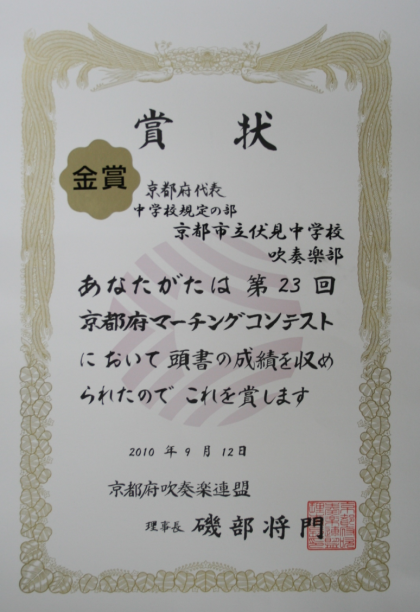 賞状
金賞
京都府代表
中学校規定の部
京都市立伏見中学校
吹奏楽部
あなたがたは 第23回
京都府マーチングコンテスト
において 頭書の成績を収め
られたので これを賞します
2010年9月12日
京都府吹奏楽連盟
理事長 磯部将門